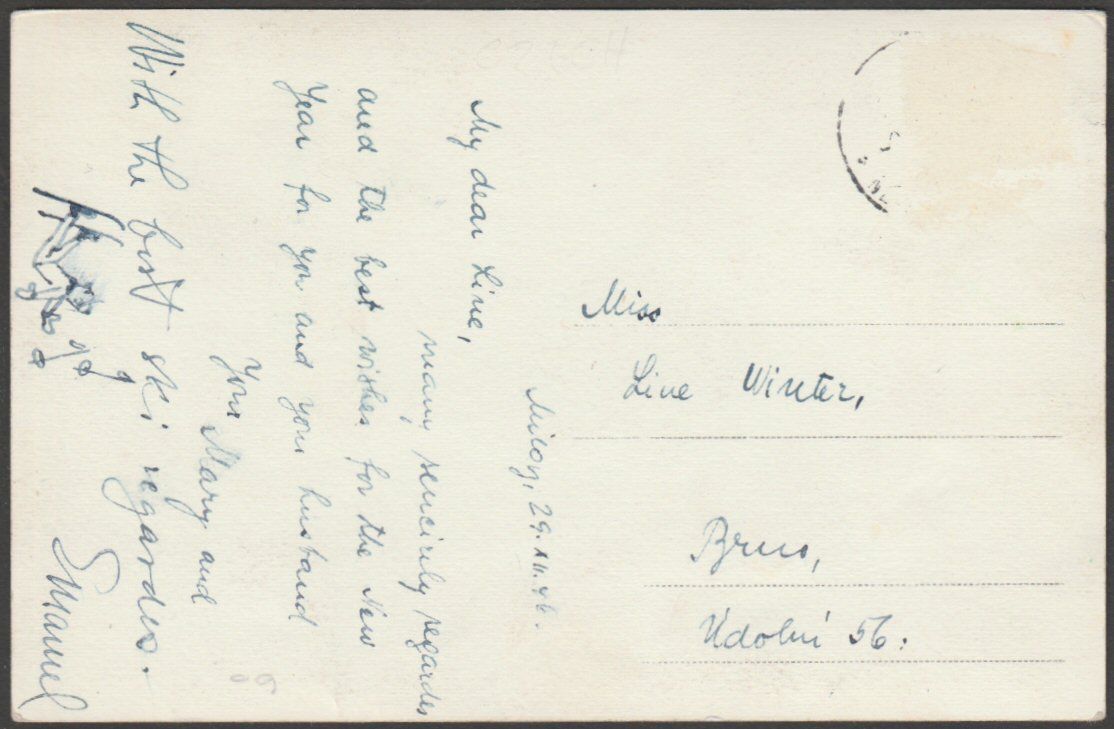 My dear Line,
many sencirily regardes
and the best wishes for the New
Year for you and your husband
Your Mary and
With the best ski regardes.
Emanuel
29.XII.46.
Miss
Line Winter,
Brno,
Údolní 56.
CZECH